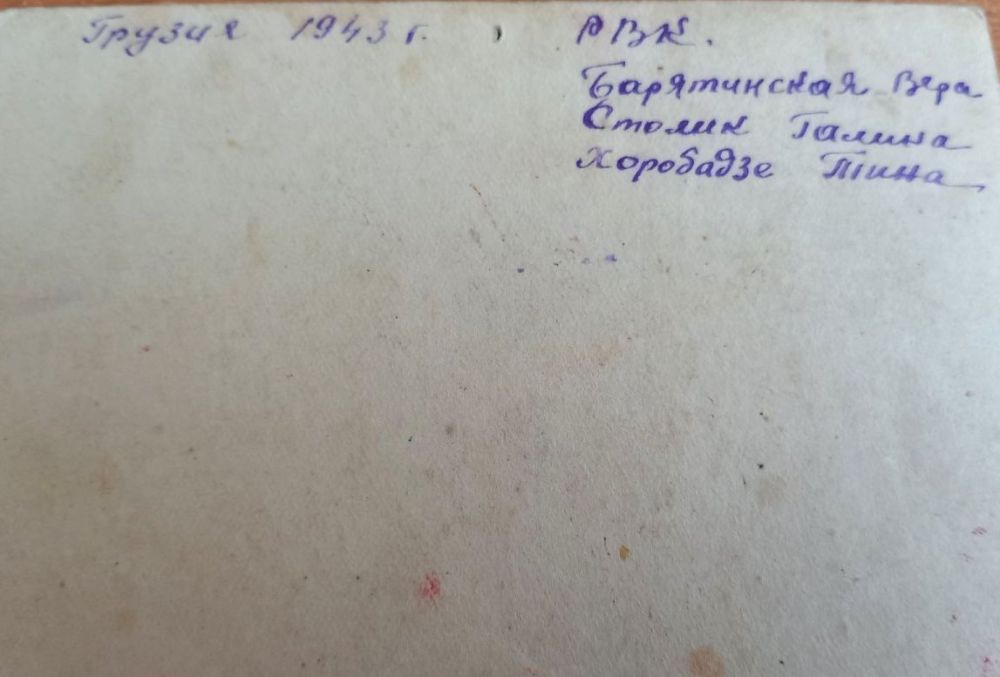 Грузия 1943 г.
РВК.
Барятинская Вера
Столик Галина
Хоробадзе Тина